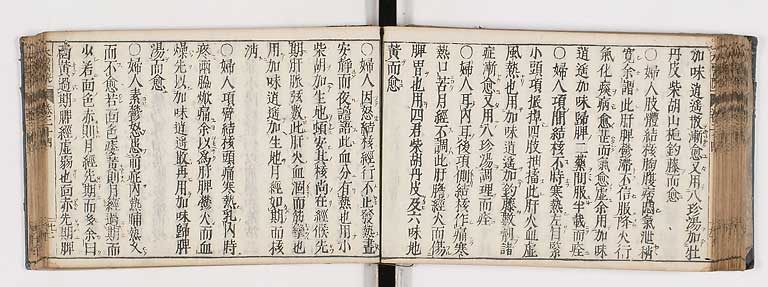 加味逍遙散漸愈又用八珍湯加牡
丹皮柴胡山梔鈎藤而愈
○婦人肢體結核胸腹痞悶氣泄稍
寛余謂此肝脾欝滯不信服降火行
氣化痰病愈甚而氣愈虛余用加味
逍遙加味歸脾二藥間服半載而痊
○婦人項間結核不時寒熱左目緊
小頭項振掉四肢抽搐此肝火血虛
風熱也用加味逍遙加鈎藤數劑諸
症漸愈又用八珍湯調理而痊
○婦人耳內耳後項側結核作痛寒
熱口苦月經不調此肝膽經火而傷
脾胃也用四君柴胡丹皮及六味地
黃而愈
○婦人因怒結核經行不止發熱晝
安靜而夜譫語此血分有熱也用小
柴胡加生地頓安其核尚在經候先
期肝脈弦數此肝火血涸而筋攣也
用加味逍遙加生地月經如期而核
消
○婦人項臂結核頭痛寒熱乳內時
疼兩脇焮痛余以爲肝脾欝火而血
燥先以加味逍遙散再用加味歸脾
湯而愈
○婦人素欝怒患前症內熱晡熱久
而不愈若面色萎黃則月經過期而
少若面色赤則月經先期而多余曰
面黃過期脾經虛弱也面赤先期脾